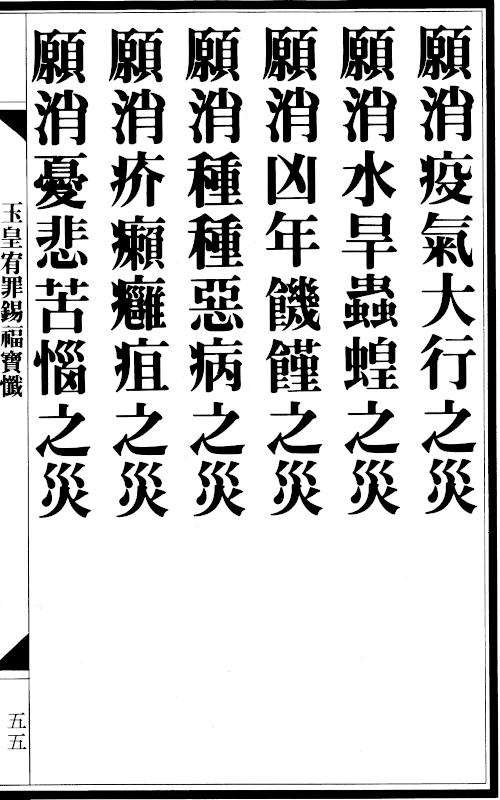 願消疫氣大行之災
願消水旱蟲蝗之災
願消凶年饑饉之災
願消種種惡病之災
願消疥癩癰疽之災
願消憂悲苦惱之災
玉皇宥罪錫福寶懺
五五